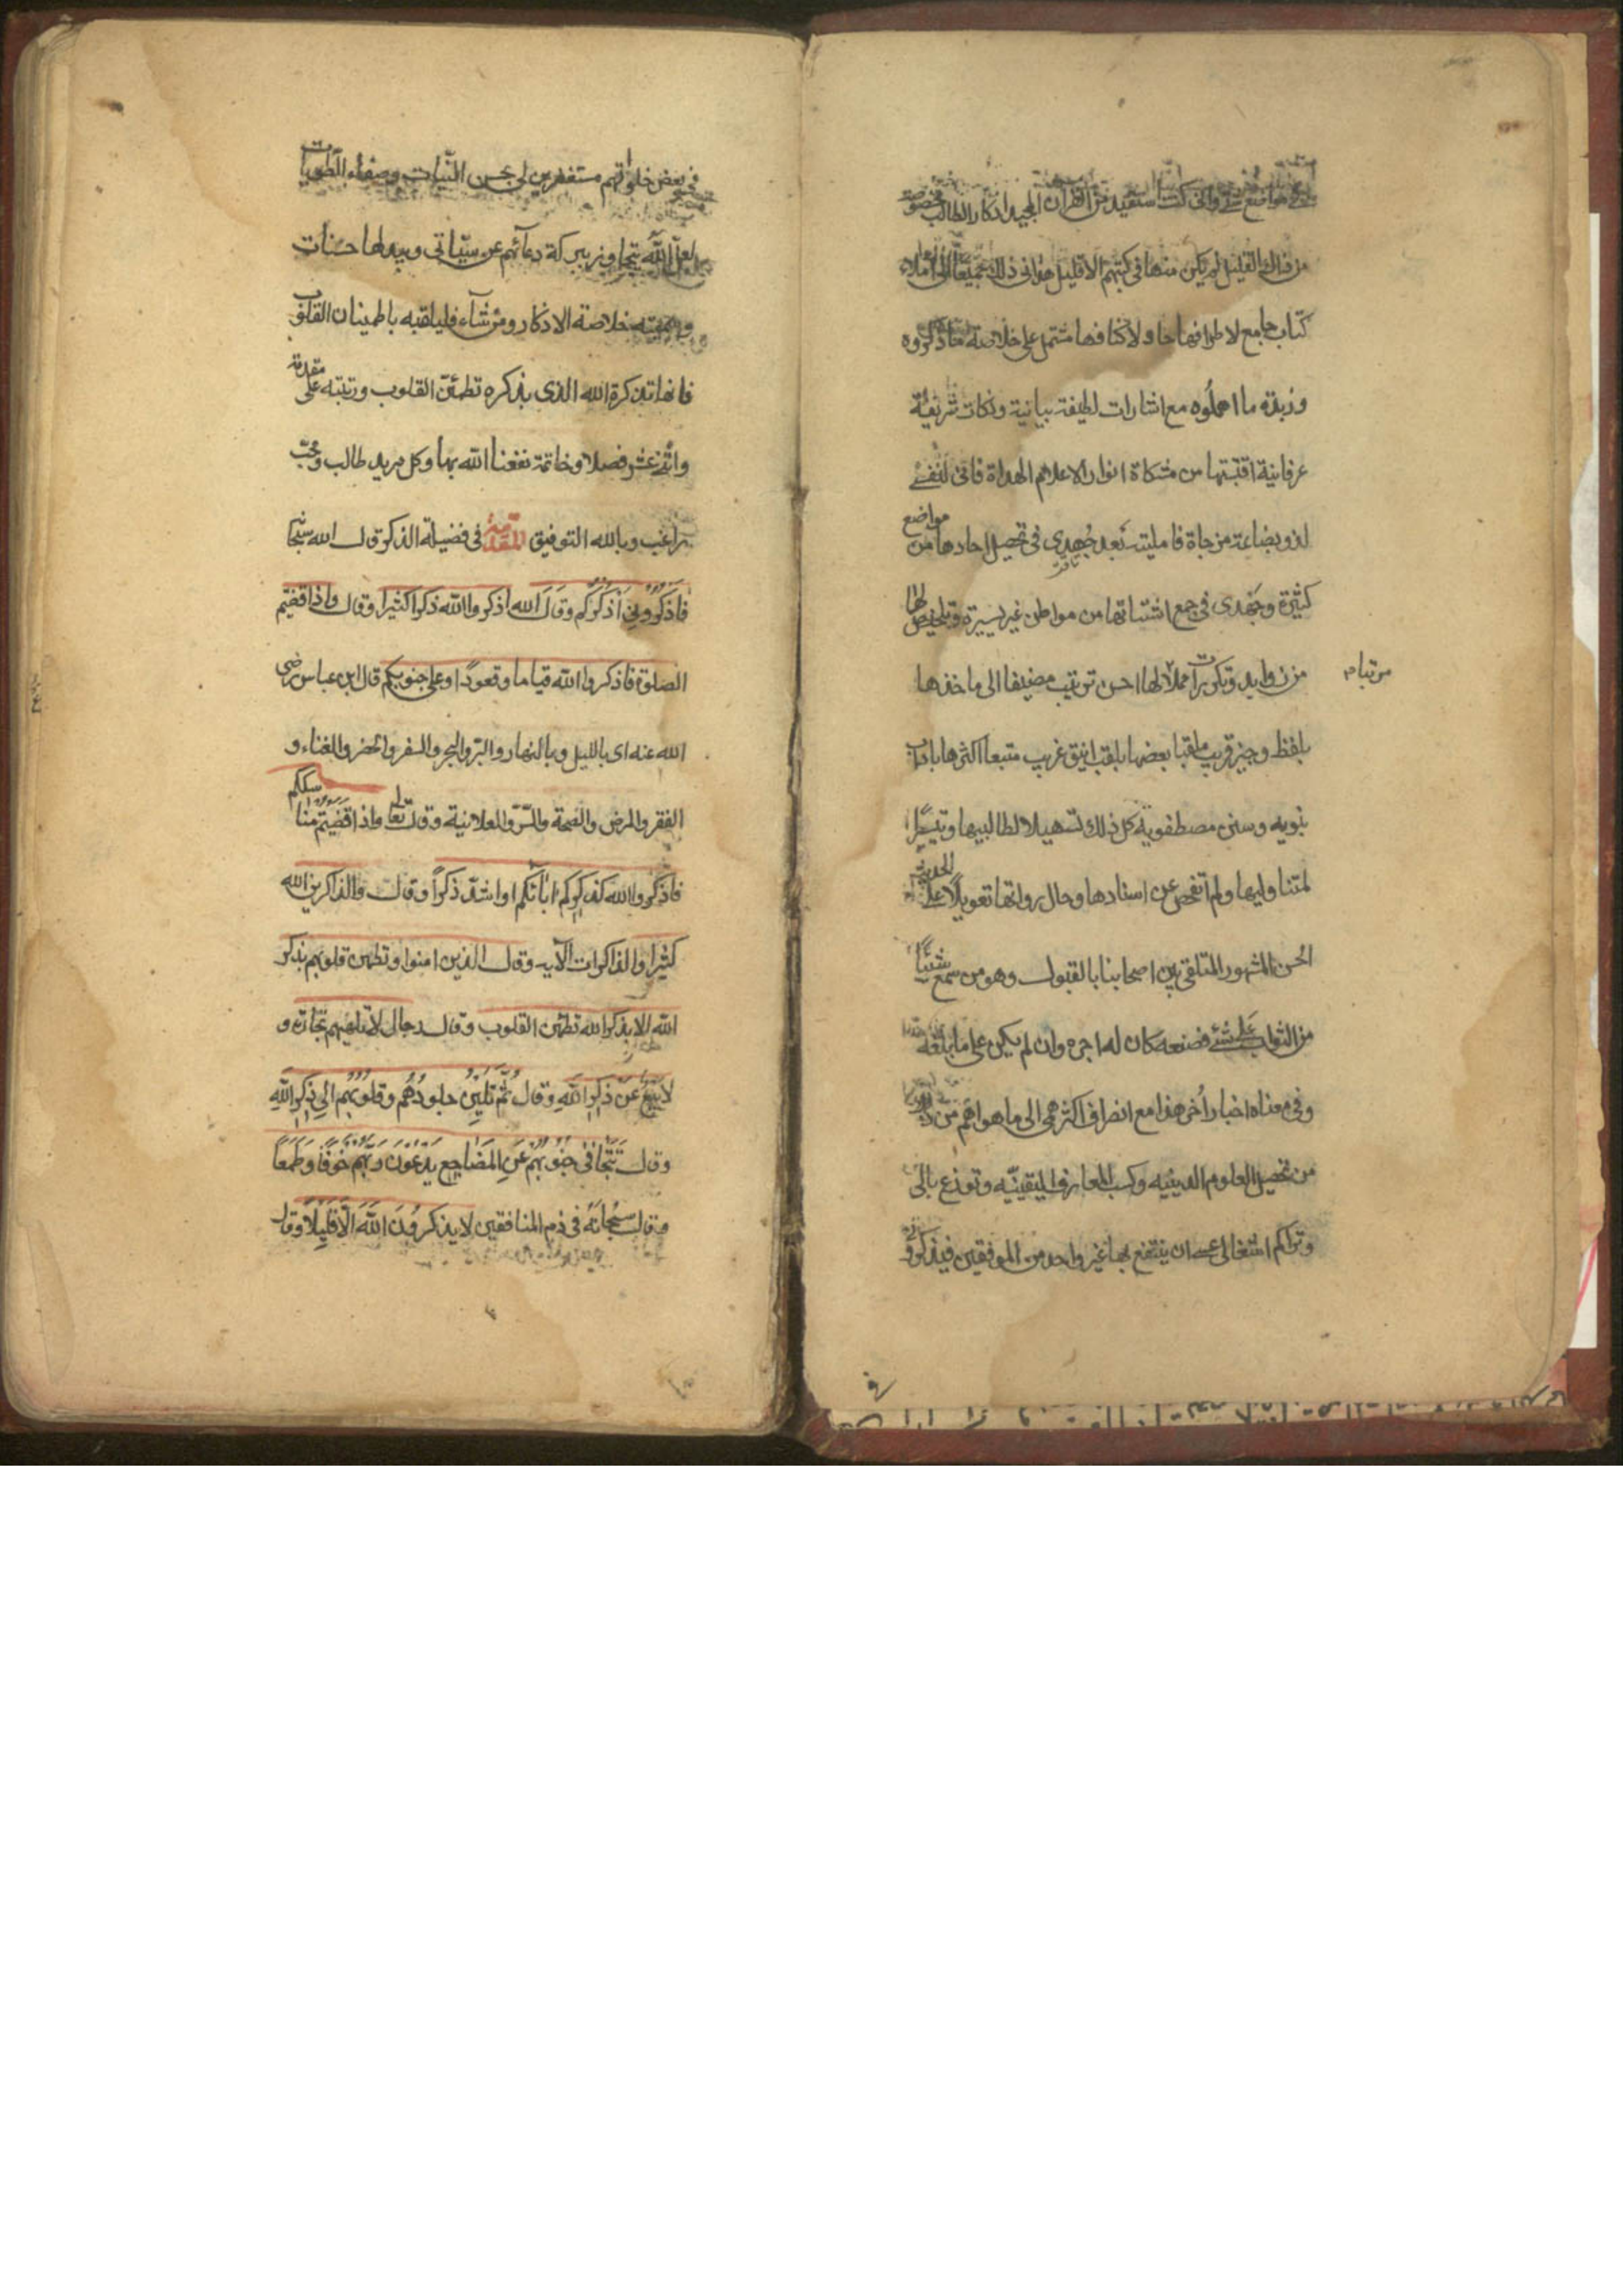 مواضع شتى وانى كنت استفيد من القران المجيد اذكارا لطالب مخصوصة
من ذلك القليل لم يكن منها فى كتبهم الا قليل فدانى ذلك الى املاء
كتاب جامع لاطرافها حاو لاكنافها مشتمل على خلاصة ما ذكروه
وزبدة ما اهملوه مع اشارات لطيفة بيانية ونكات شريفة
عرفانية اقتبستها من مشكاة انوار الاعلام الهداة فانى لنفسى
لذو بضاعة مزجاة فامليته بعد جهدى فى تحصيل احادها من مواضع
كثيرة وجهدى فى جمع اشتاتها من مواطن غير يسيرة وتلخيص لها
من زوايد وتكريرات مملا لها احسن ترتيب مضيفا الى ماخذها
مرتبا م
بلفظ وجيز قريب ملقبا بعضها بلقب انيق غريب متبعا اكثرها باداب
نبويه وسنن مصطفويه كل ذلك تسهيلا لطالبيها وتيسيرا
لمتناوليها ولم اتفحص عن اسنادها وحال رواتها تعويلا على الحديث
الحسن المشهور المتلقى بين اصحابنا بالقبول وهو من سمع شيئا
من الثواب على شئ فصنعه كان له اجره وان لم يكن على ما بلغه
وفى معناه اخبار اخر هذا مع انصراف اكثر همى الى ما هو اهم من
من تحصيل العلوم الدينيه وكسب المعارف اليقينيّه وتوزع بالى
وتراكم اشتغالى عسى ان ينتفع بها غير واحد من الموفقين فيذكرونى
فى بعض خلواتهم مستغفرين لى بحسن النيات وصفاء الطويات
لعل الله يتجاوز ببركة دعائهم عن سيّاتى ويبدلها حسنات
وسميته خلاصة الاذكار ومن شآء فليلقبه باطمينان القلوب
فانها تذكرة الله الذى بذكره تطمئن القلوب ورتبته على مقدمة
واثنى عشر فصلا وخاتمة نفعنا الله بها وكل مريد طالب ومحب
راغب وبالله التوفيق المقدمة فى فضيلة الذكر قال الله سبحا
فَاذْكُرُونِى اَذْكُرْكُم وقال الله اذكروا الله ذكرا كثيرا وقال واذا قضيتم
الصلوة فاذكروا الله قياما وقعودًا وعلى جنوبكم قال ابن عباس رضى
الله عنه اى بالليل وبالنهار والبر والبحر والسفر والحضر والغناء و
الفقر والمرض والصحة والسّر والعلانية وقال تعالى واذا قضيتم مناسككم
فاذكروا الله كذكركم اباءكم او اشد ذكراً وقال والذاكرين الله
كثيرا والذاكرات الآيه وقال الذين امنوا وتطمئن قلوبهم بذكر
الله الا بذكر الله تطمئن القلوب وقال رجال لا تلهيهم تجارة و
لا بَيْعٌ عَنْ ذِكْرِ اللهِ وقال ثُمَّ تَلِينُ جلودُهُم وقلُوبُهُم اِلى ذِكْرِ اللهِ
وقال تَتَجَافى جنُوبُهُم عَنِ المَضَاجِعِ يَدْعُوْنَ رَبَّهُمْ خَوْفًا وَطَمَعًا
وقال سبحانَهُ فى ذم المنافقين لا يذكرُونَ اللهَ اِلّا قَليلًا وقال